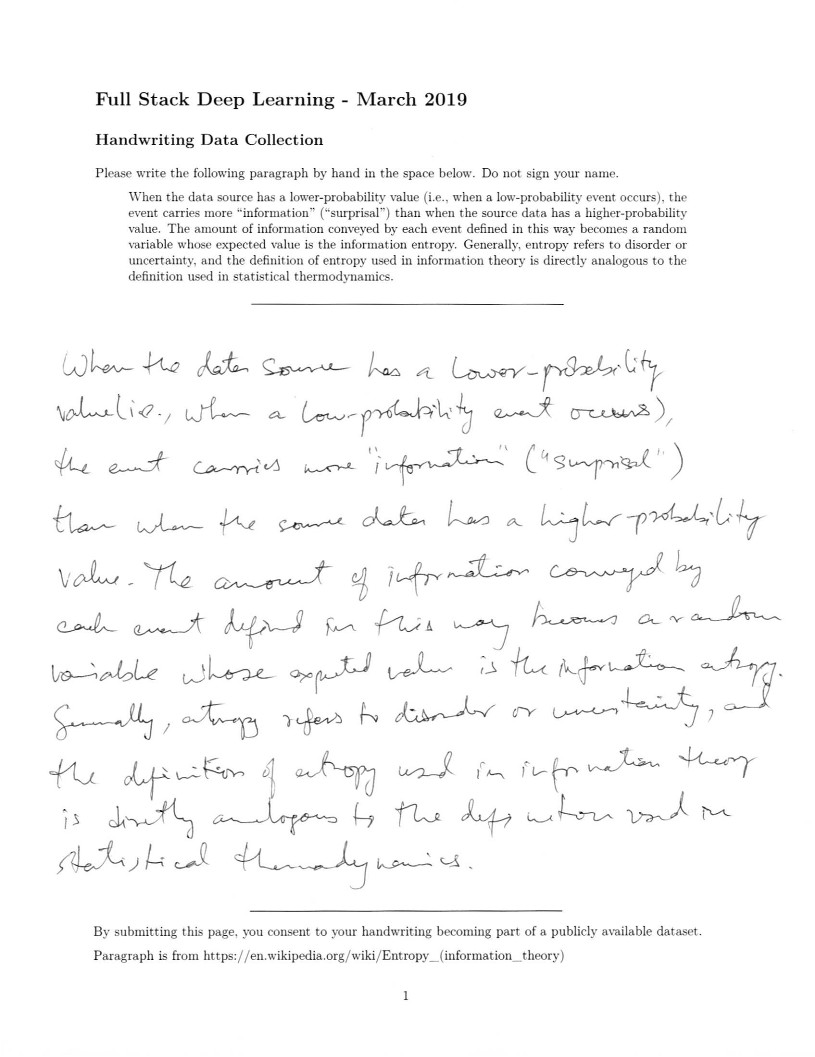 Full Stack Deep Learning - March 2019
Handwriting Data Collection
Please write the following paragraph by hand in the space below. Do not sign your name.
When the data source has a lower-probability value (i.e., when a low-probability event occurs), the
event carries more “information” (“surprisal”) than when the source data has a higher-probability
value. The amount of information conveyed by each event defined in this way becomes a random
variable whose expected value is the information entropy. Generally, entropy refers to disorder or
uncertainty, and the definition of entropy used in information theory is directly analogous to the
definition used in statistical thermodynamics.
When the data source has a lower-probability
value (i.e., when a low-probability event occurs),
the event carries more "information" ("surprisal")
than when the source data has a higher-probability
value. The amount of information conveyed by
each event defined in this way becomes a random
variable whose expected value is the information entropy.
Generally, entropy refers to disorder or uncertainty, and
the definition of entropy used in information theory
is directly analogous to the definition used in
statistical thermodynamics.
By submitting this page, you consent to your handwriting becoming part of a publicly available dataset.
Paragraph is from https://en.wikipedia.org/wiki/Entropy_(information_theory)
1